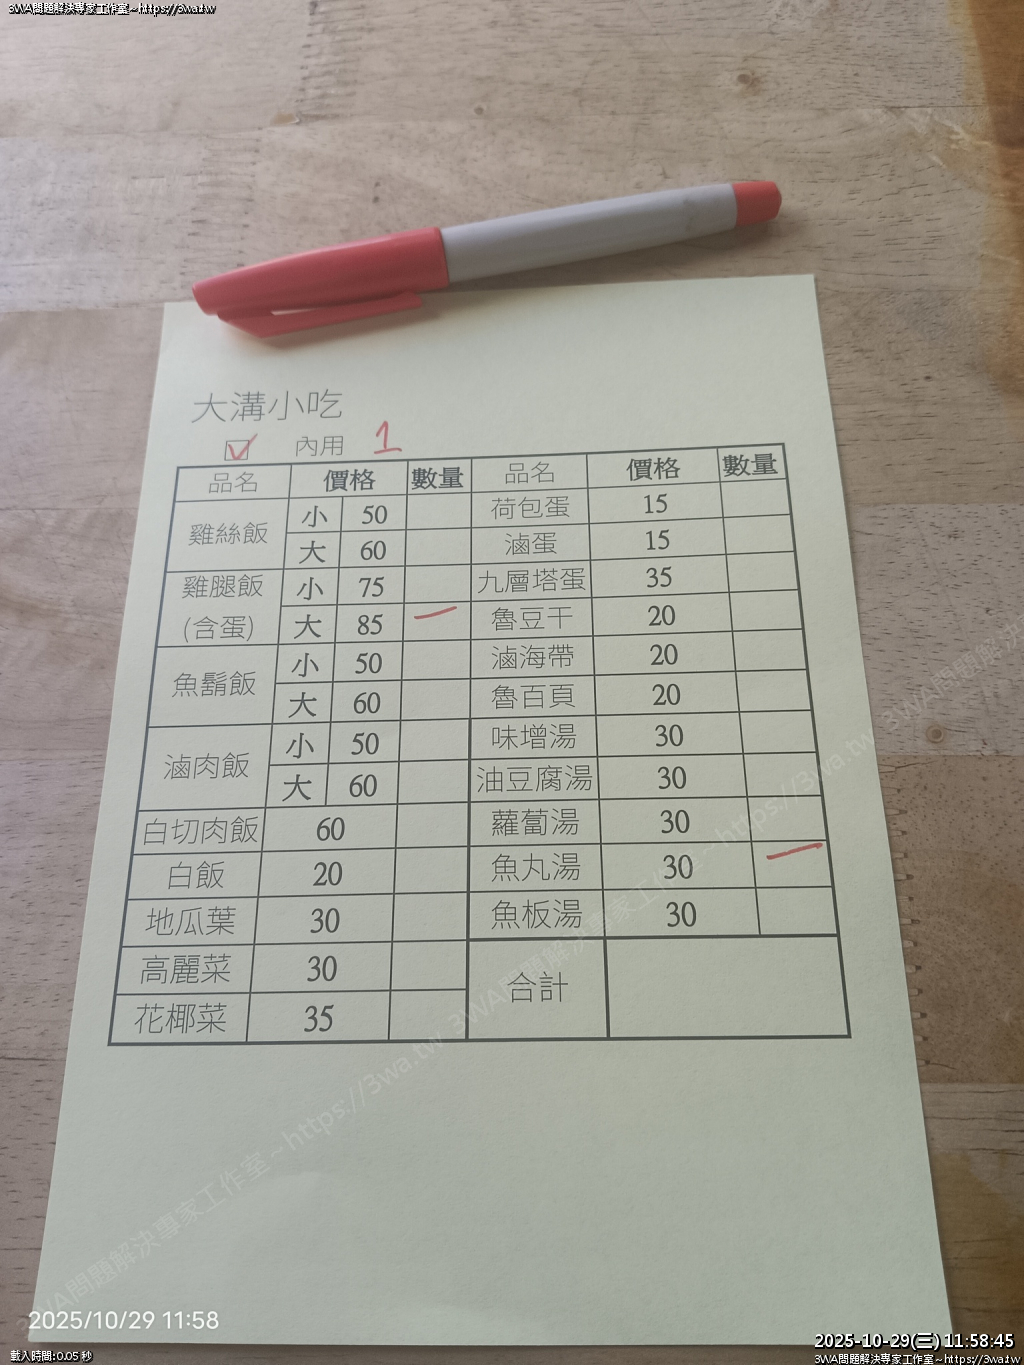 3WA問題解決專家工作室~https://3wa.tw
大溝小吃
☑ 內用 1
品名 價格 數量 品名 價格 數量
雞絲飯 小 50 荷包蛋 15
大 60 滷蛋 15
雞腿飯 小 75 九層塔蛋 35
(含蛋) 大 85 一 魯豆干 20
魚鬍飯 小 50 滷海帶 20
大 60 魯百頁 20
滷肉飯 小 50 味增湯 30
大 60 油豆腐湯 30
白切肉飯 60 蘿蔔湯 30
白飯 20 魚丸湯 30 一
地瓜葉 30 魚板湯 30
高麗菜 30 合計
花椰菜 35
3WA問題解決專家工作室~https://3wa.tw 3WA問題解決專家工作室~https://3wa.tw 3WA問題解決
2025/10/29 11:58
2025-10-29(三) 11:58:45
載入時間:0.05 秒
3WA問題解決專家工作室~https://3wa.tw